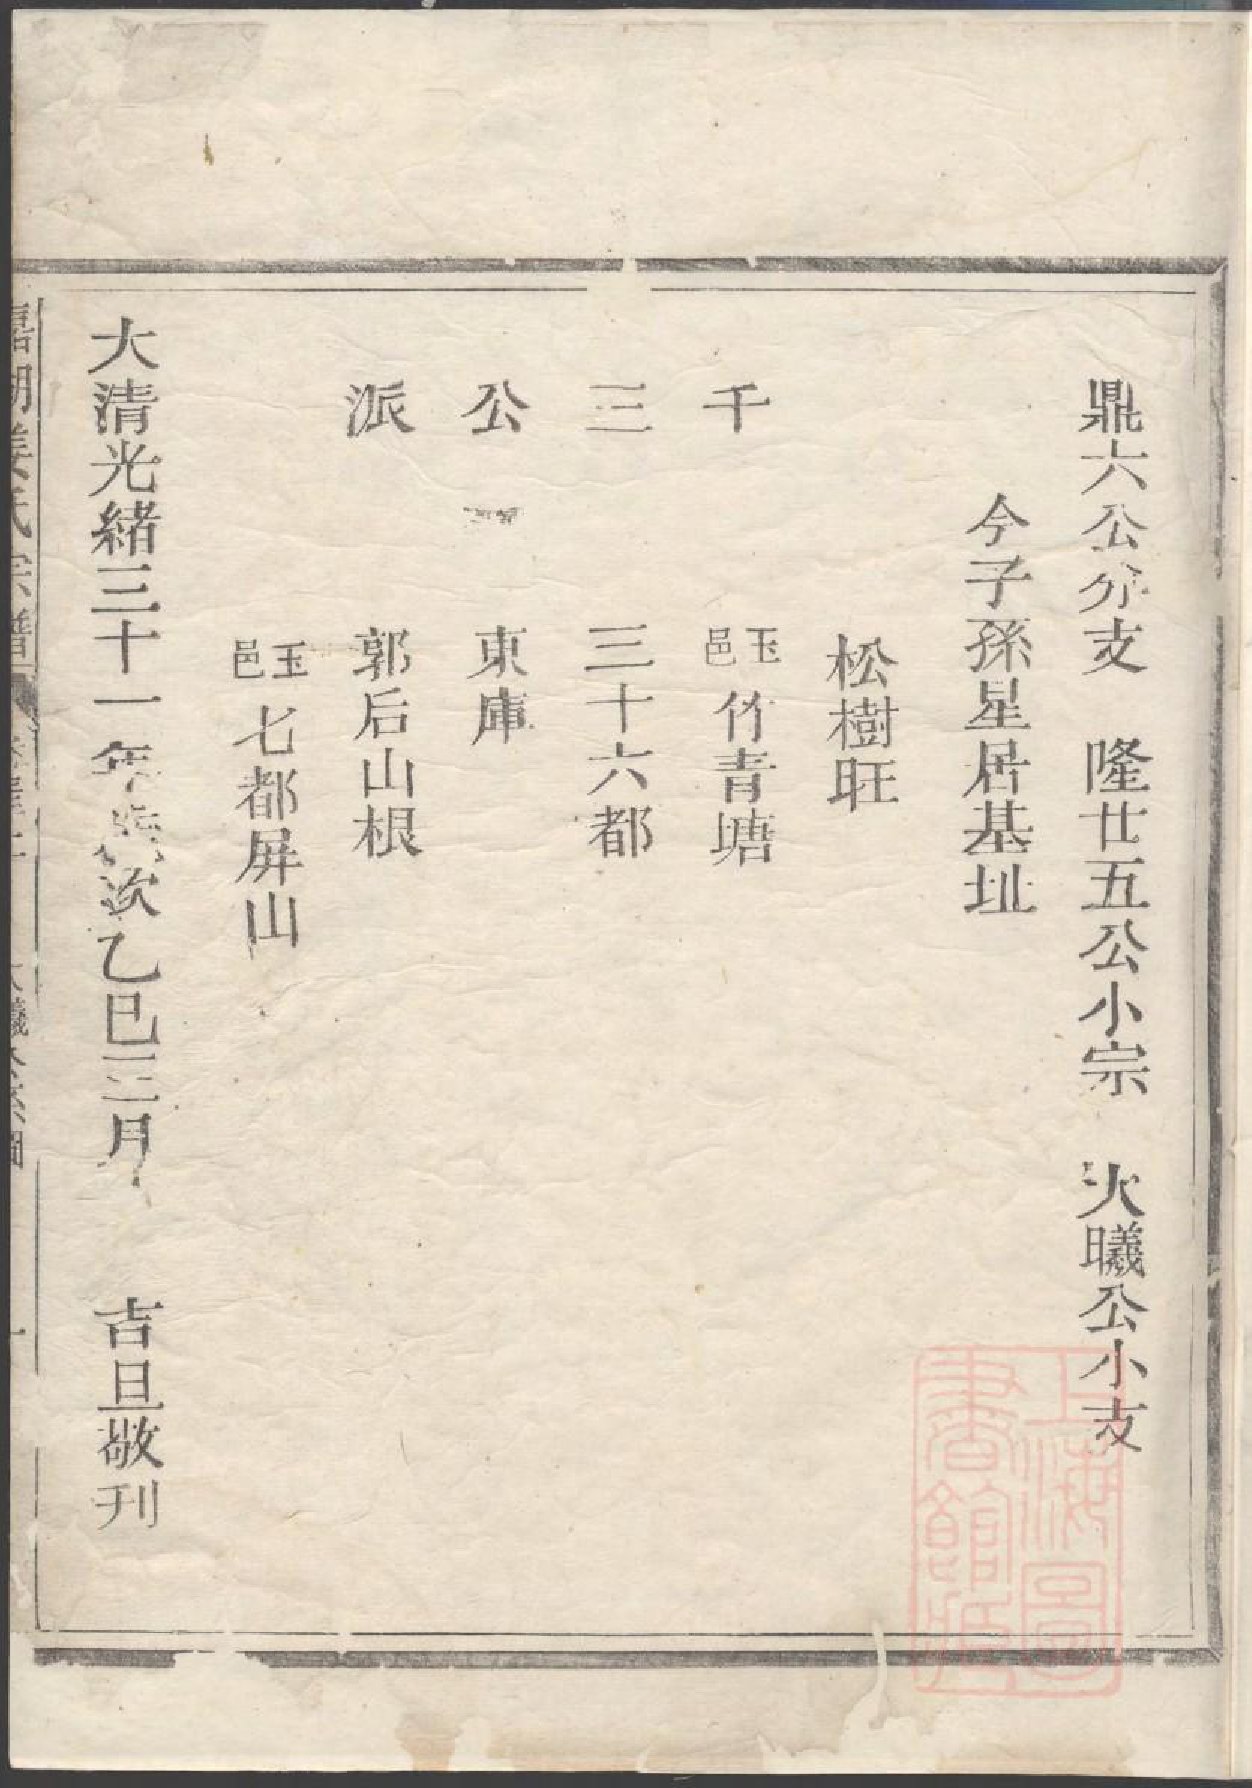 鼎六公分支　隆廿五公小宗　火曦公小支
今子孫星居基址
松樹旺
千　玉邑竹青塘
三　三十六都
公　東庫
派　郭后山根
玉邑七都屏山
大清光緒三十一年歲次乙巳三月　吉旦敬刊
湖姜氏宗譜
曦公系圖
上海圖書館藏